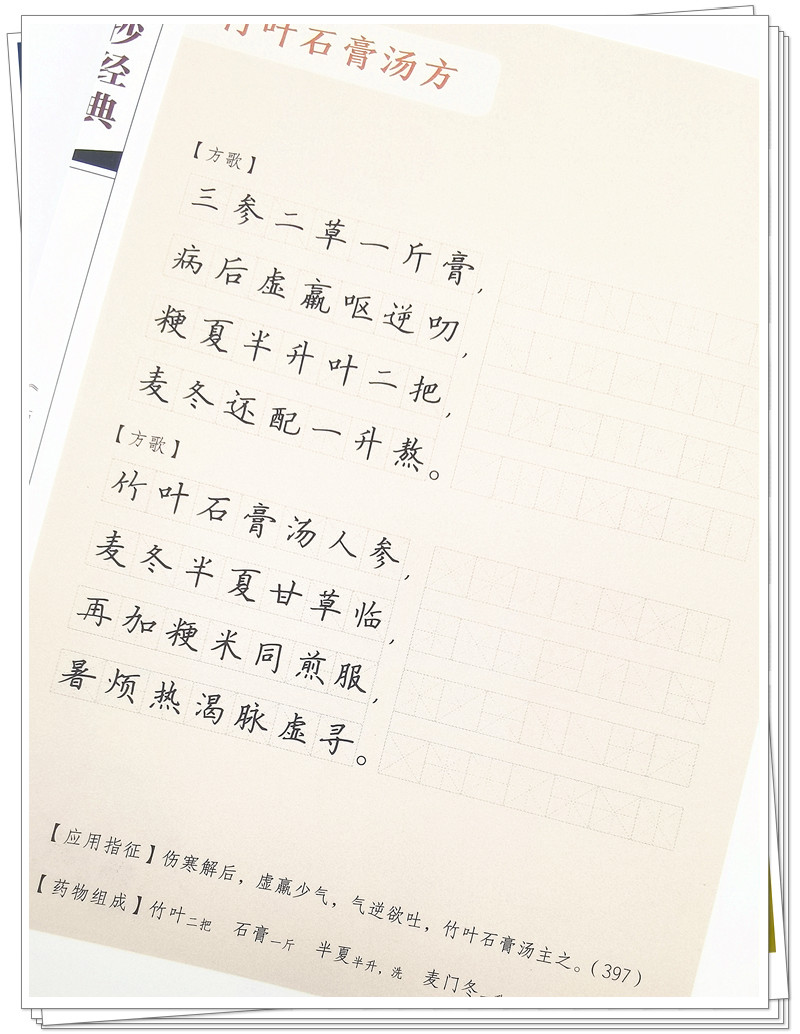 抄经典
竹叶石膏汤方
【方歌】
三参二草一斤膏，
病后虚羸呕逆叨，
粳夏半升叶二把，
麦冬还配一升熬。
【方歌】
竹叶石膏汤人参，
麦冬半夏甘草临，
再加粳米同煎服，
暑烦热渴脉虚寻。
【应用指征】伤寒解后，虚羸少气，气逆欲吐，竹叶石膏汤主之。（397）
【药物组成】竹叶二把 石膏一斤 半夏半升，洗 麦门冬一升